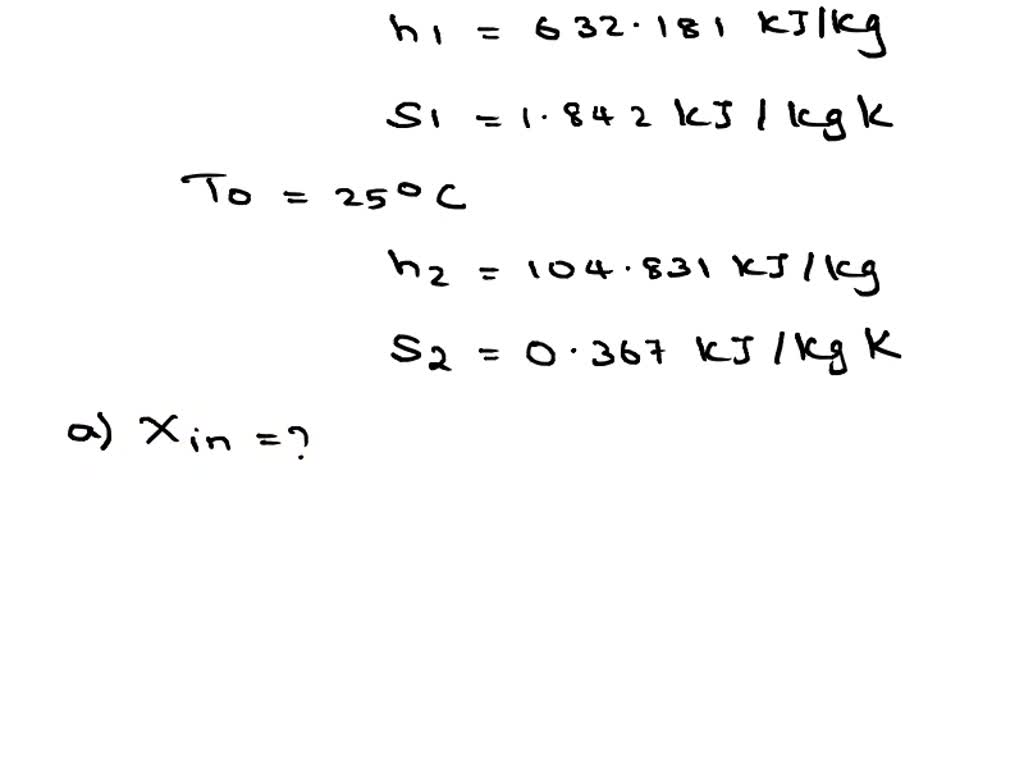 h1 = 632.181 kJ/kg
S1 = 1.842 kJ/kg K
T0 = 25°C
h2 = 104.831 kJ/kg
S2 = 0.367 kJ/kg K
a) Xin = ?